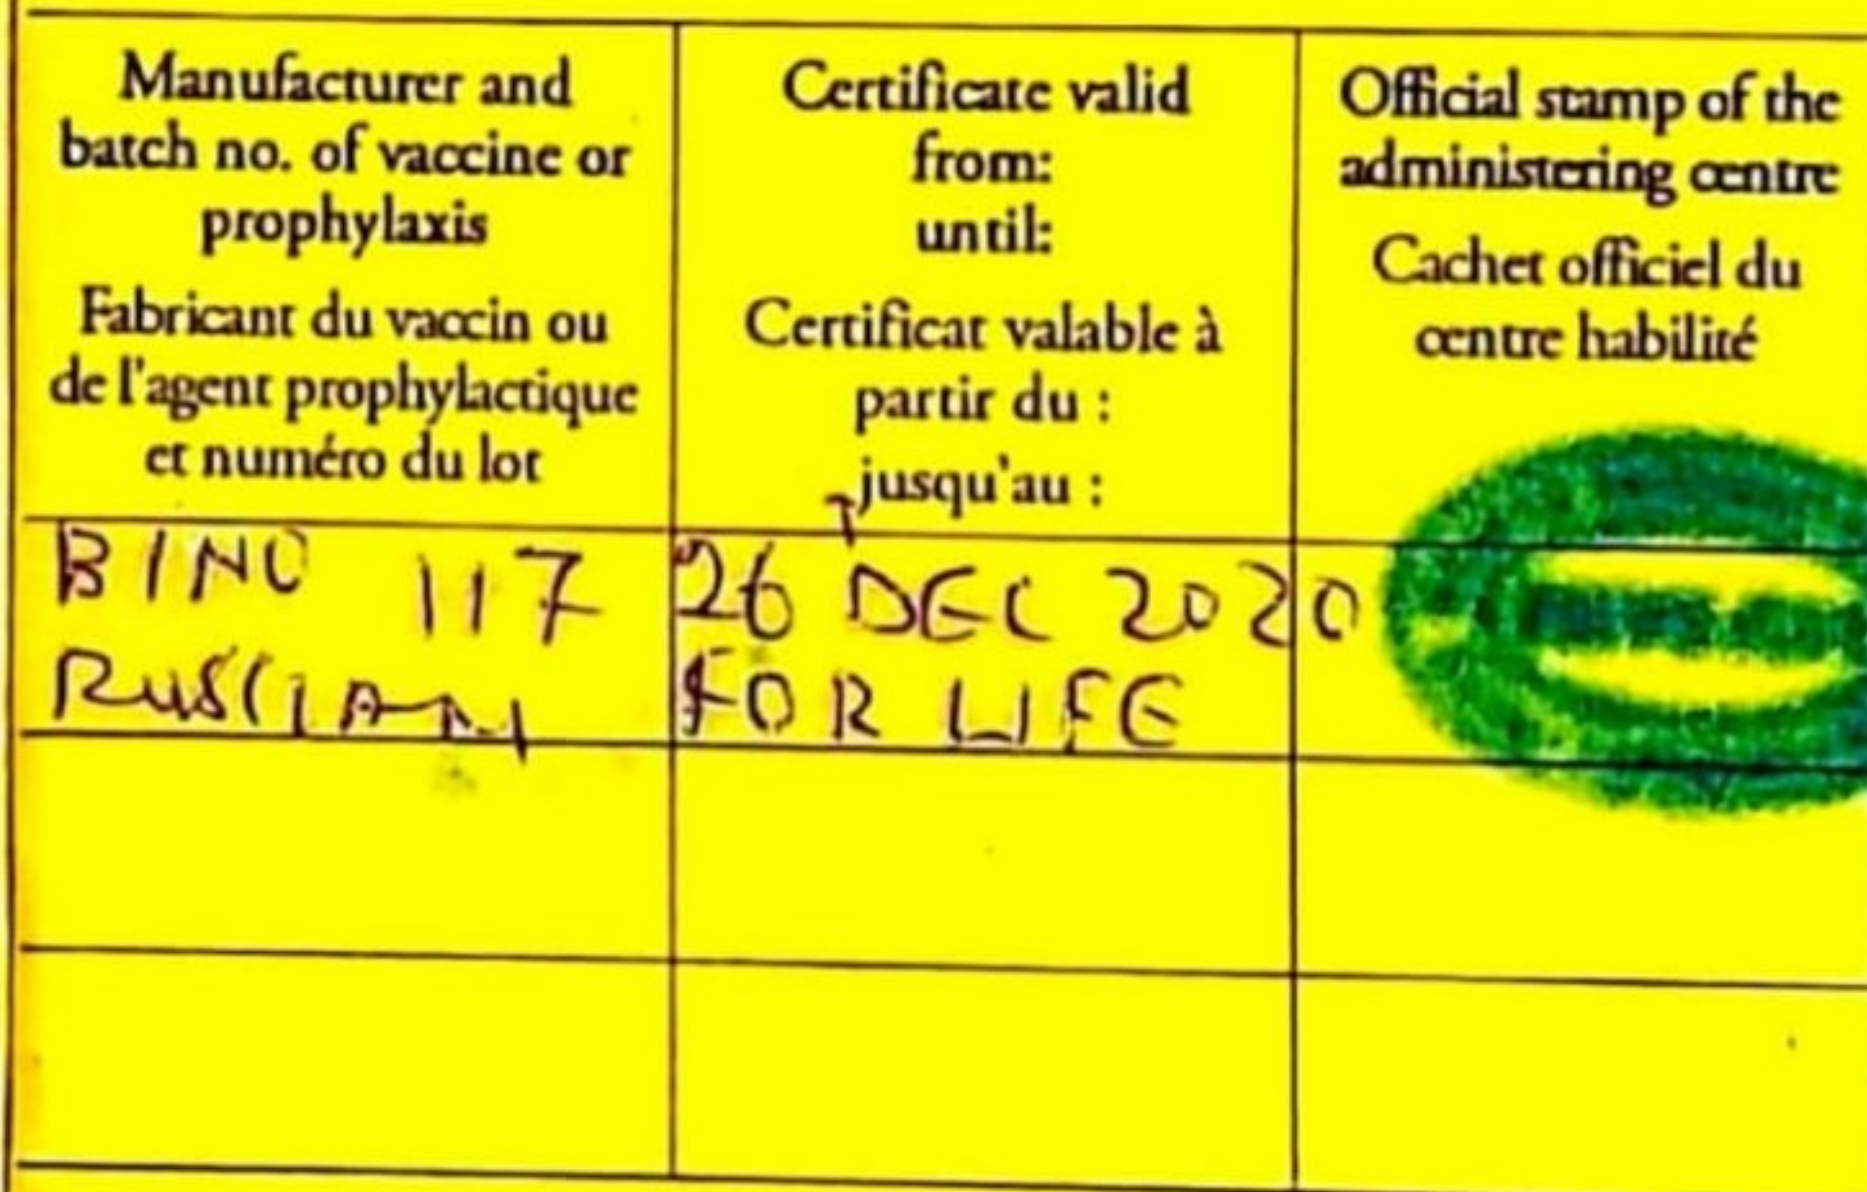 Manufacturer and
batch no. of vaccine or
prophylaxis
Fabricant du vaccin ou
de l'agent prophylactique
et numéro du lot
Certificate valid
from:
until:
Certificat valable à
partir du :
jusqu'au :
Official stamp of the
administering centre
Cachet officiel du
centre habilité
117
RUSSIAN
26 DEC 2020
FOR LIFE